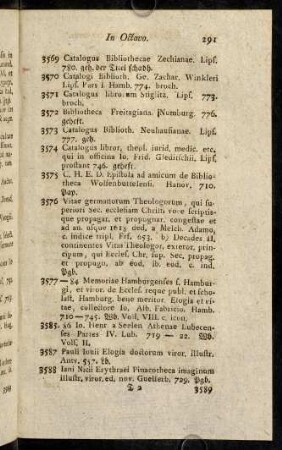 In Octavo. 291
3569 Catalogus Bibliothecae Zechianae. Lipf.
780. geh. der Titel schadh.
3570 Catalogi Biblioth. Ge. Zachar. Winkleri
Lipf. Pars I. Hamb. 774. broch.
3571 Catalogus librorum Stiglitz. Lipf. 773.
broch.
3572 Bibliotheca Freitagiana. Numburg. 776.
geheft.
3573 Catalogus Biblioth. Neuhausianae. Lipf.
777. geh.
3574 Catalogus libror. theol. iurid. medic. etc.
qui in officina Io. Frid. Gleditschii, Lipf.
prostant 746. geheft.
3575 C. H. E. D. Epistola ad amicum de Biblio-
theca Wolfenbuttelensi. Hanov. 710.
Pap.
3576 Vitae germanorum Theologorum, qui su-
periori Sec. ecclesiam Christi voce scriptis-
que propagar. et propugnar. congestae et
ad an. usque 1613 ded. a Melch. Adamo,
c. indice tripl. Frf. 653. b) Decades II,
continentes Vitas Theologor. exteror. prin-
cipum, qui Eccles. Chr. sup. Sec. propag.
et propugn. ab eod. ib. eod. c. ind.
Pgb.
3577—84 Memoriae Hamburgenses f. Hambur-
gi, et viror. de Eccles. reque publ. et scho-
last. Hamburg. bene meritor. Elogia et vi-
tae, collectore Io. Alb. Fabricio. Hamb.
710—745. Wb. Voll. VIII. c. icon.
3585. 86 Io. Henr a Seelen Athenae Lubecen-
ses Partes IV. Lub. 719 — 22. Wb.
Voll. II.
3587 Pauli Iovii Elogia doctorum viror. illustr.
Antv. 557. Lb.
3588 Iani Nicii Erythraei Pinacotheca imaginum
illustr. viror. ed. nov. Guelferb. 729. Pgb.
T 2 3589